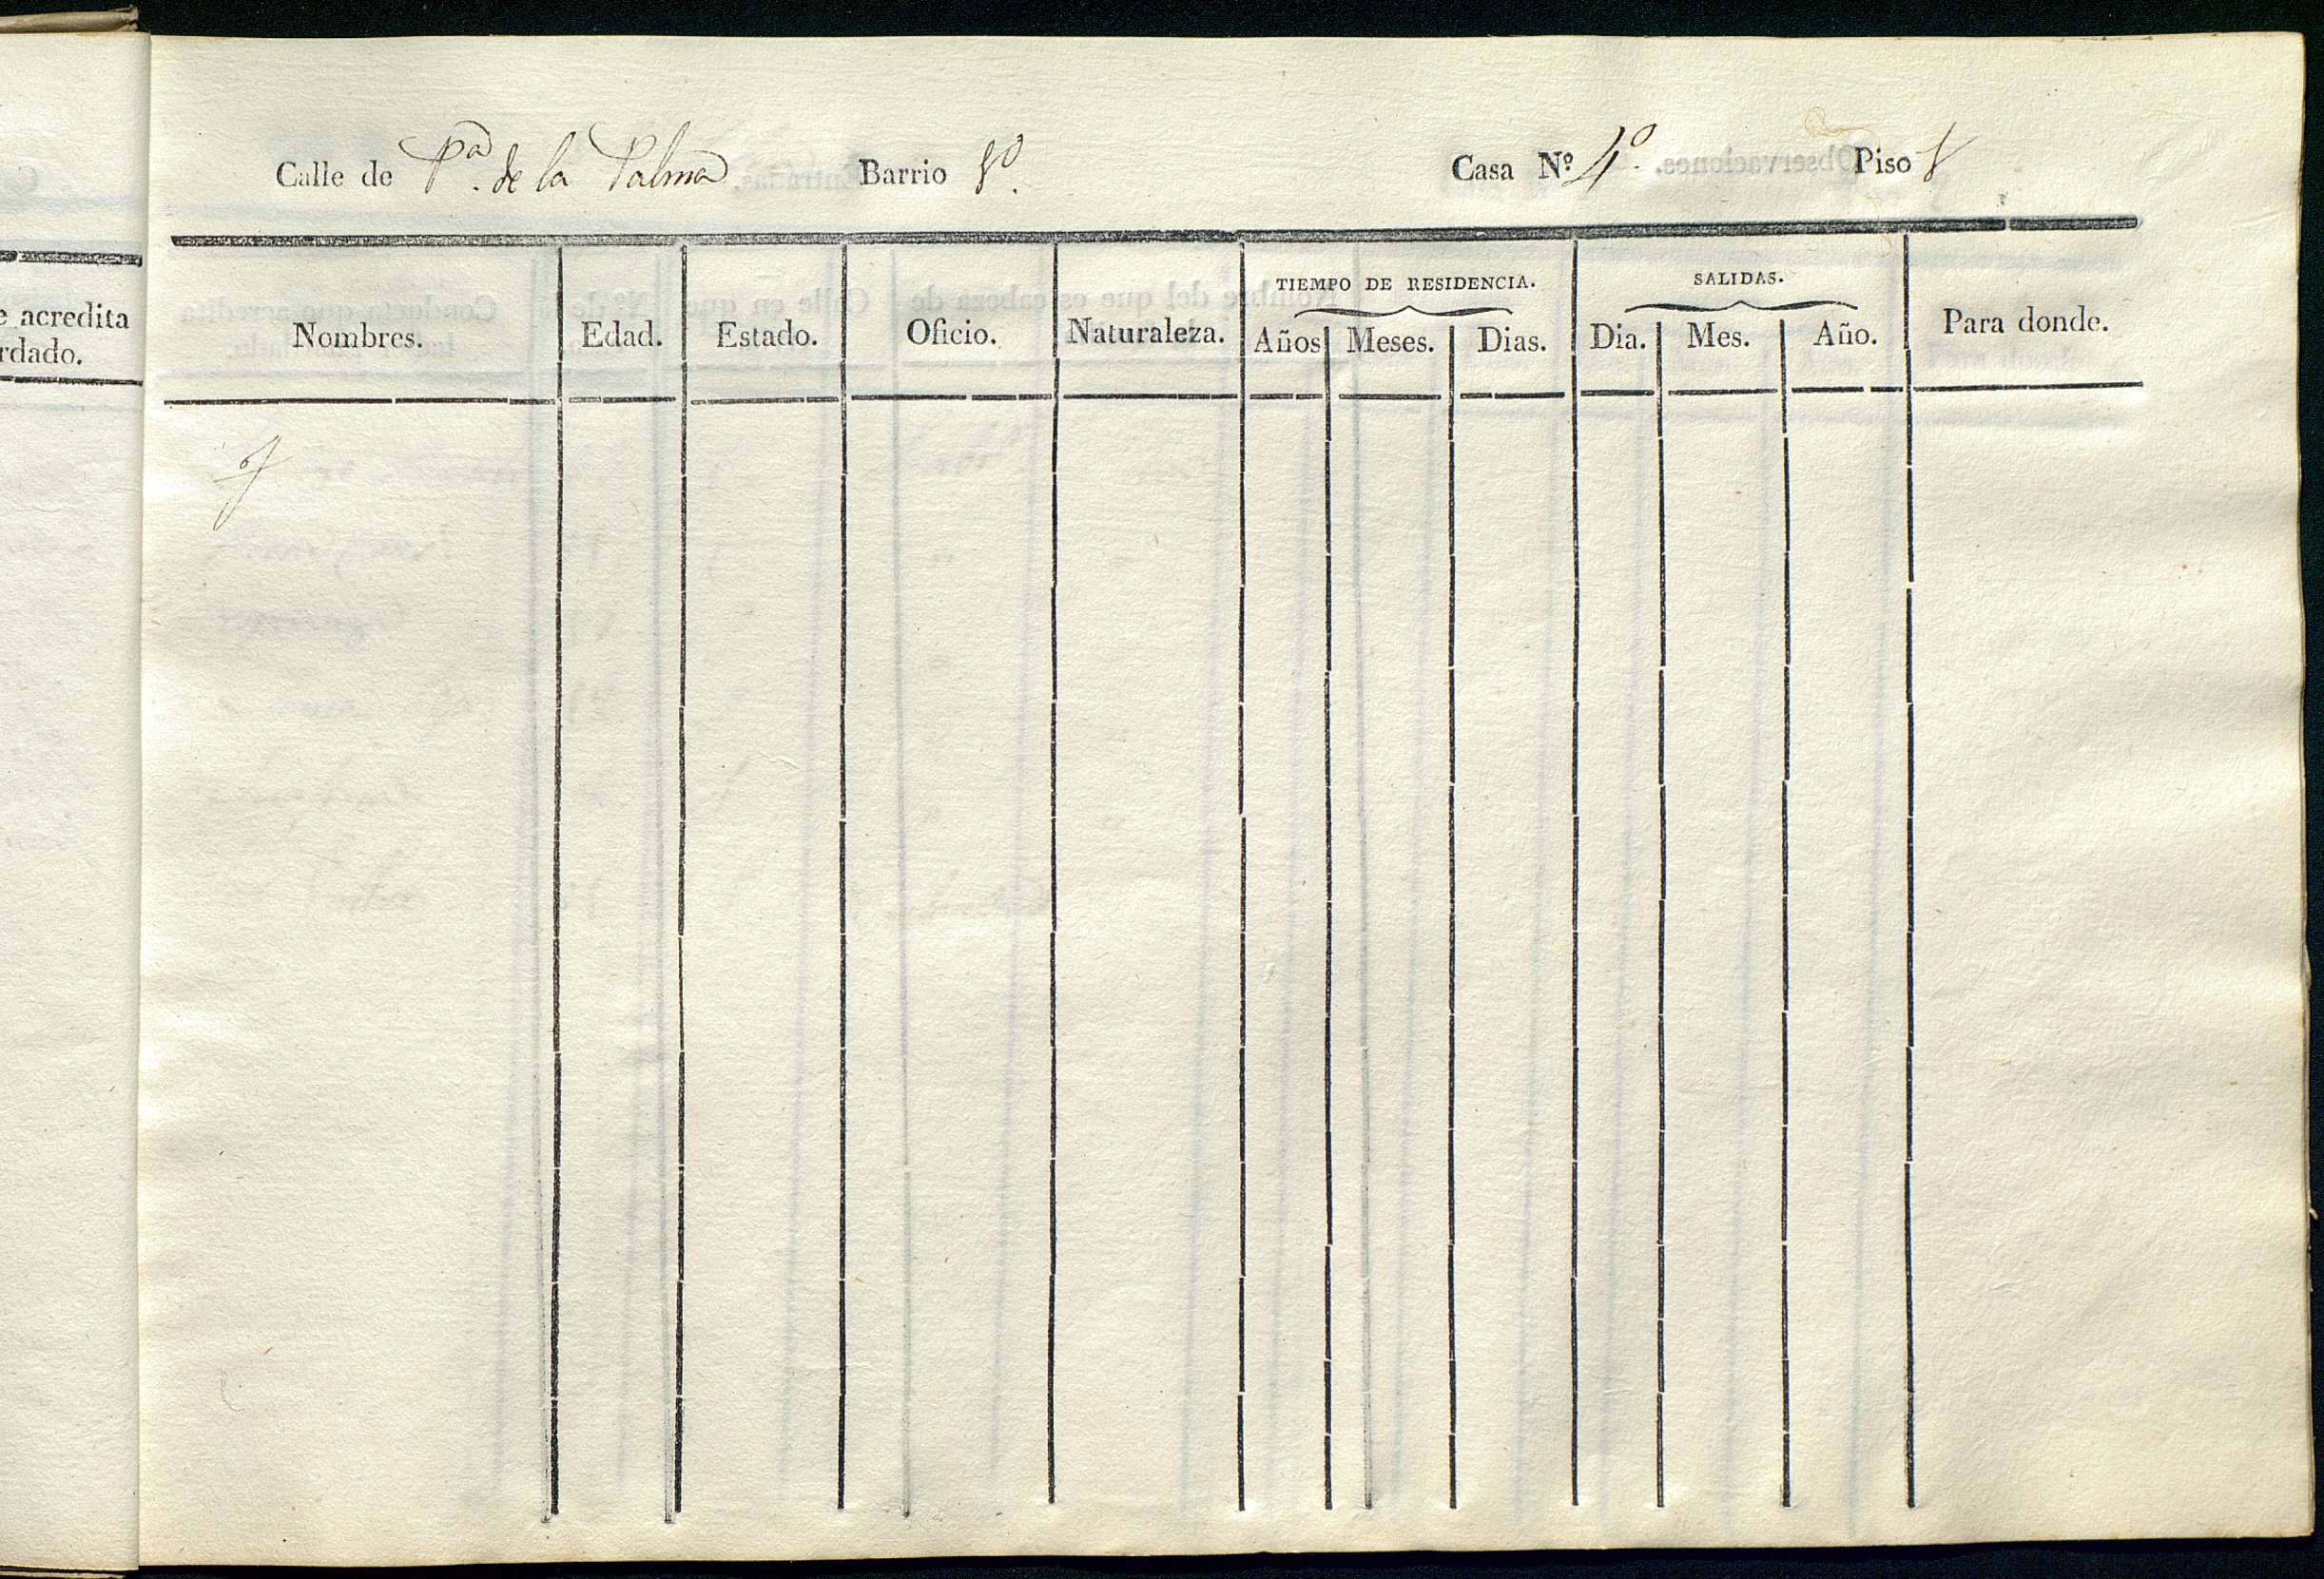 Calle de Pª. de la Palma Barrio 8º. Casa Nº 4º. Piso
TIEMPO DE RESIDENCIA. SALIDAS.
Nombres. Edad. Estado. Oficio. Naturaleza. Años Meses. Dias. Dia. Mes. Año. Para donde.
e acredita
rdado.